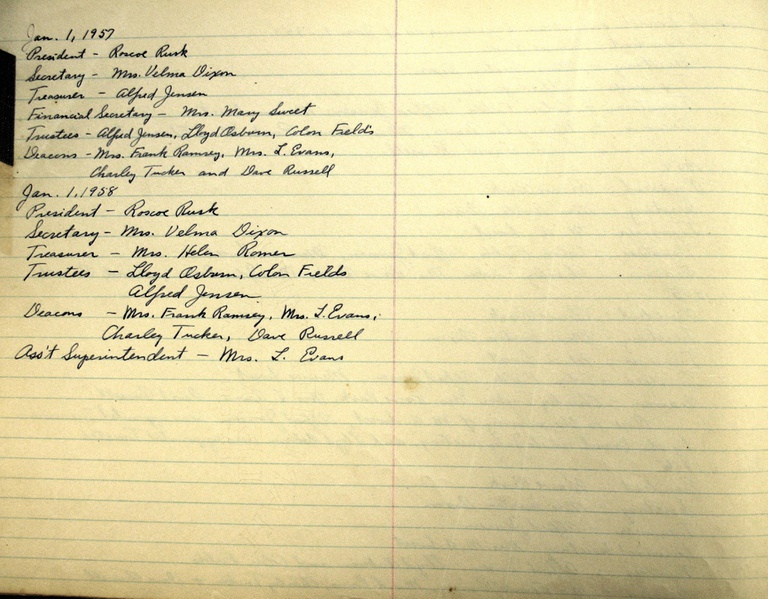 Jan. 1, 1957
President - Roscoe Rusk
Secretary - Mrs. Velma Dixon
Treasurer - Alfred Jensen
Financial Secretary - Mrs. Mary Sweet
Trustees - Alfred Jensen, Lloyd Osburn, Colon Fields
Deacons - Mrs. Frank Ramsey, Mrs. L. Evans,
Charley Tucker and Dave Russell
Jan. 1, 1958
President - Roscoe Rusk
Secretary - Mrs. Velma Dixon
Treasurer - Mrs. Helen Romer
Trustees - Lloyd Osburn, Colon Fields
Alfred Jensen
Deacons - Mrs. Frank Ramsey, Mrs. L. Evans,
Charley Tucker, Dave Russell
Ass't Superintendent - Mrs. L. Evans